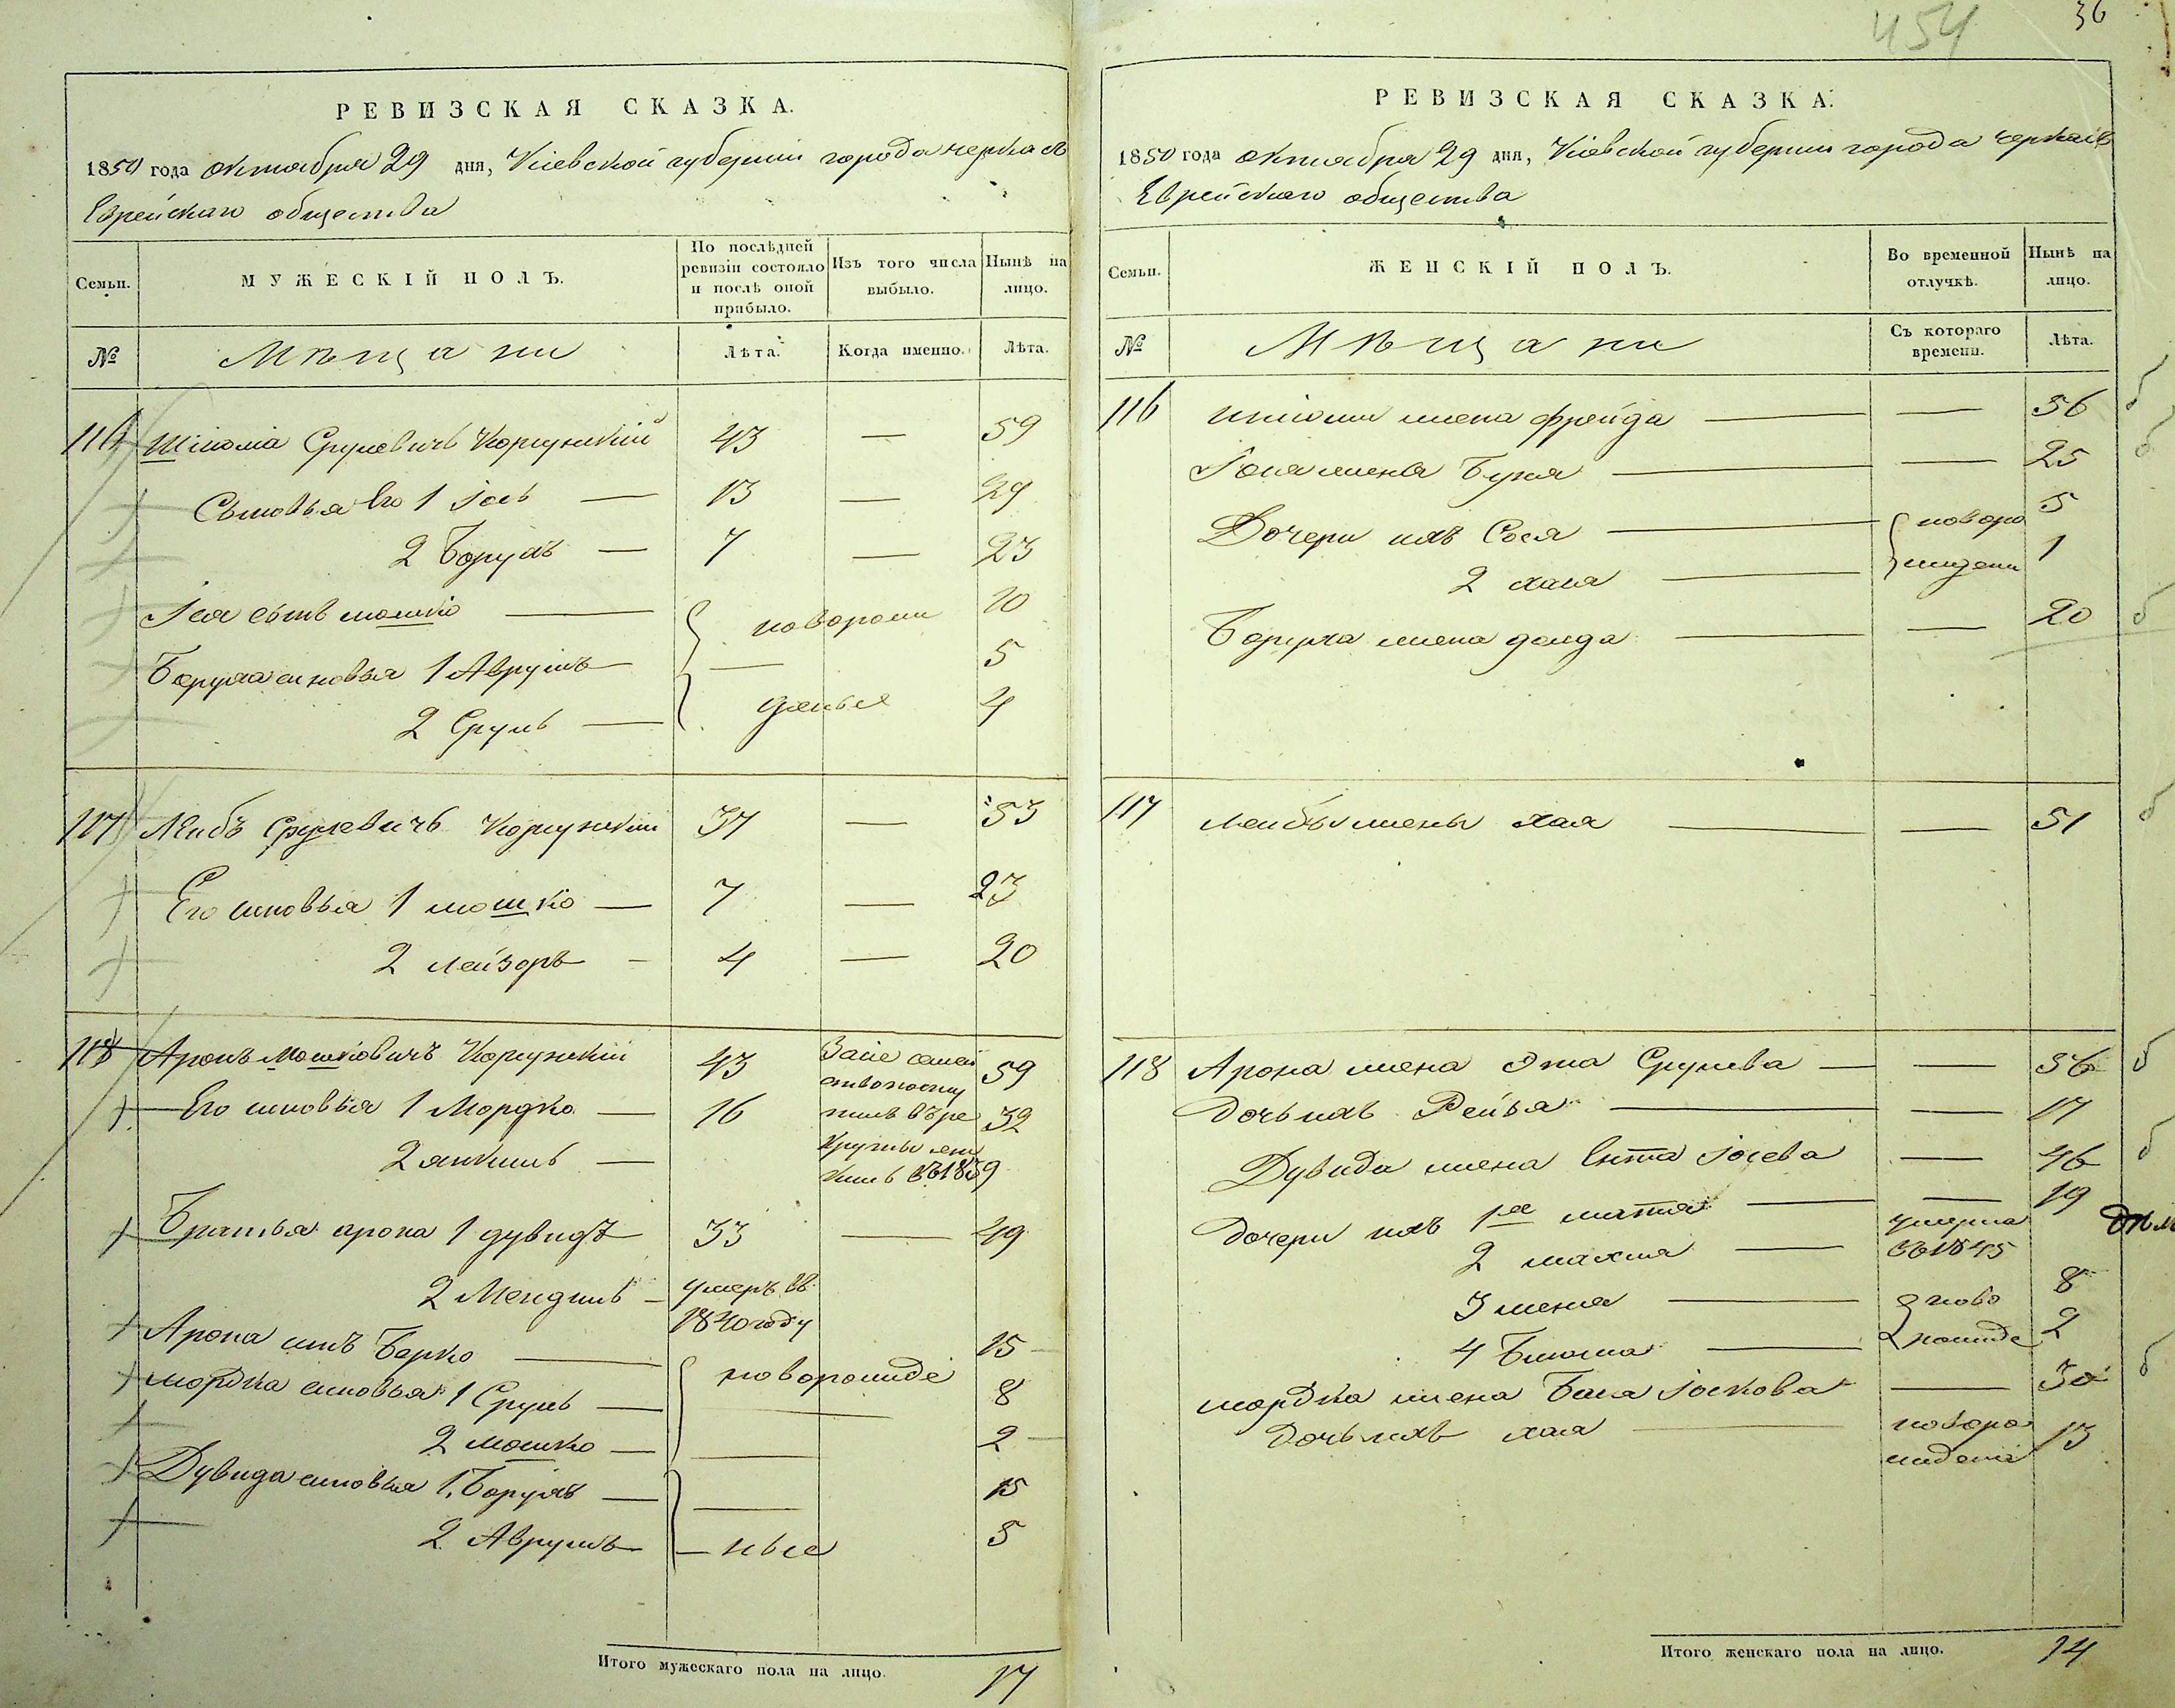 454
36
РЕВИЗСКАЯ СКАЗКА.
1850 года октября 29 дня, Кіевской губерніи города черкасъ
Еврейскаго общества
Семьи.
МУЖЕСКІЙ ПОЛЪ.
По послѣдней ревизіи состояло и послѣ оной прибыло.
Изъ того числа выбыло.
Нынѣ на лицо.
№
Мѣщани
Лѣта.
Когда именно.
Лѣта.
116 Срулевичъ Корсунскій 43 — 59
Сыновья Его 1 Іось — 13 — 29
2 Борухъ — 7 — 23
Іося сынъ мошко — новорож 10
Боруха сыновья 1 Аврумъ — 5
2 Сруль — деные 4
117 Лейбъ Срулевичъ Корсунскій 37 — 53
Его сыновья 1 мошко — 7 — 23
2 лейзоръ — 4 — 20
118 Аронъ Мошковичъ Корсунскій 43 59
Его сыновья 1 Мордко — 16 32
2 янкель —
въ 1839
Братья арона 1 дувидъ 33 — 49
2 Мендель — умеръ въ
1840 году
Арона сынъ Берко — 15 —
мордка сыновья 1 Сруль — новорожде 8
2 мошко — 2 —
Дувида сыновья 1. Борухъ — 15
2 Аврумъ — ные 5
Итого мужескаго пола на лицо. 17
РЕВИЗСКАЯ СКАЗКА.
1850 года октября 29 дня, Кіевской губерніи города черкасъ
Еврейскаго общества
Семьи.
ЖЕНСКІЙ ПОЛЪ.
Во временной отлучкѣ.
Нынѣ на лицо.
№
Мѣщани
Съ котораго времени.
Лѣта.
116 жена фрейда — — 56
Іося жена Буня — — 25
Дочери ихъ Сося — новоро 5
2 хая — ждени 1
Боруха жена — — 20
117 лейбы жены хая — — 51
118 Арона жена Эта Срулева — — 56
Дочь ихъ Рейзя — — 17
Дувида жена Ента Іосева — 46
Дочери ихъ 1я — — 19
2 — умерла
въ 1845
3 — ново 8
4 — рожде 2
мордка жена Бася Іоскова — 30
Дочь ихъ хая — новоро 13
ждения
Итого женскаго пола на лицо. 14